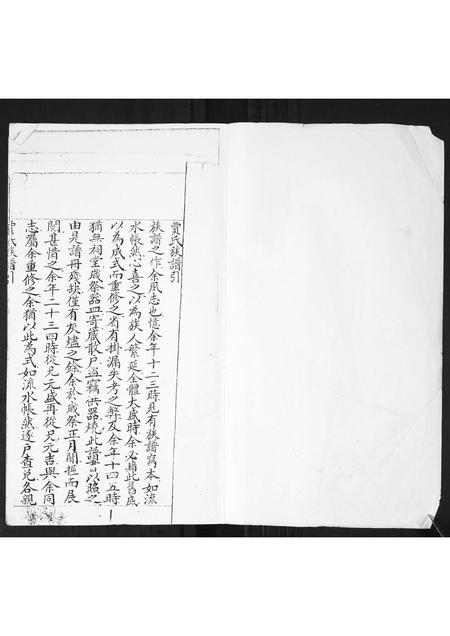 賈氏族譜引
族譜之作余夙志也憶余年十二三時見有族譜寫本如流
水帳然心喜之以為族人繁延全體大盛時余必藉此舊底
以為成式而重修之省有掛漏失考之弊及余年十四五時
猶無祠堂歲祭器皿寄藏散戶盜竊供器燒此譜以照之
由是譜冊殘缺僅有灰燼之餘余於歲祭正月開櫃而展
閱甚惜之余年二十三四時從兄元盛再從兄元吉與余同
志屬余重修之余猶以此為式如流水帳然逐戶查兌各親
賈氏族譜引